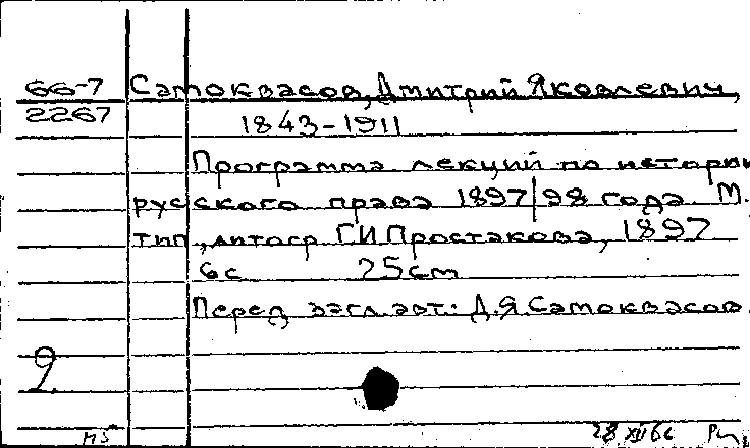 66-7 Самоквасов, Дмитрий Яковлевич,
2267 1843-1911
Программа лекций по истории
русского права 1897/98 года М.
тип., литогр Г И Простакова, 1897
6с 25см
Перед загл авт: Д.Я Самоквасов
2
28 XII 66